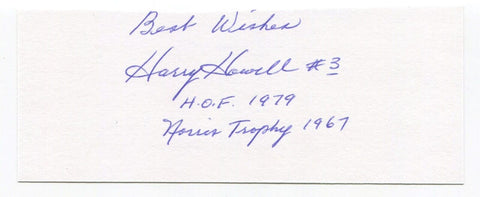 Best Wishes
Harry Howell #3
H.O.F. 1979
Norris Trophy 1967